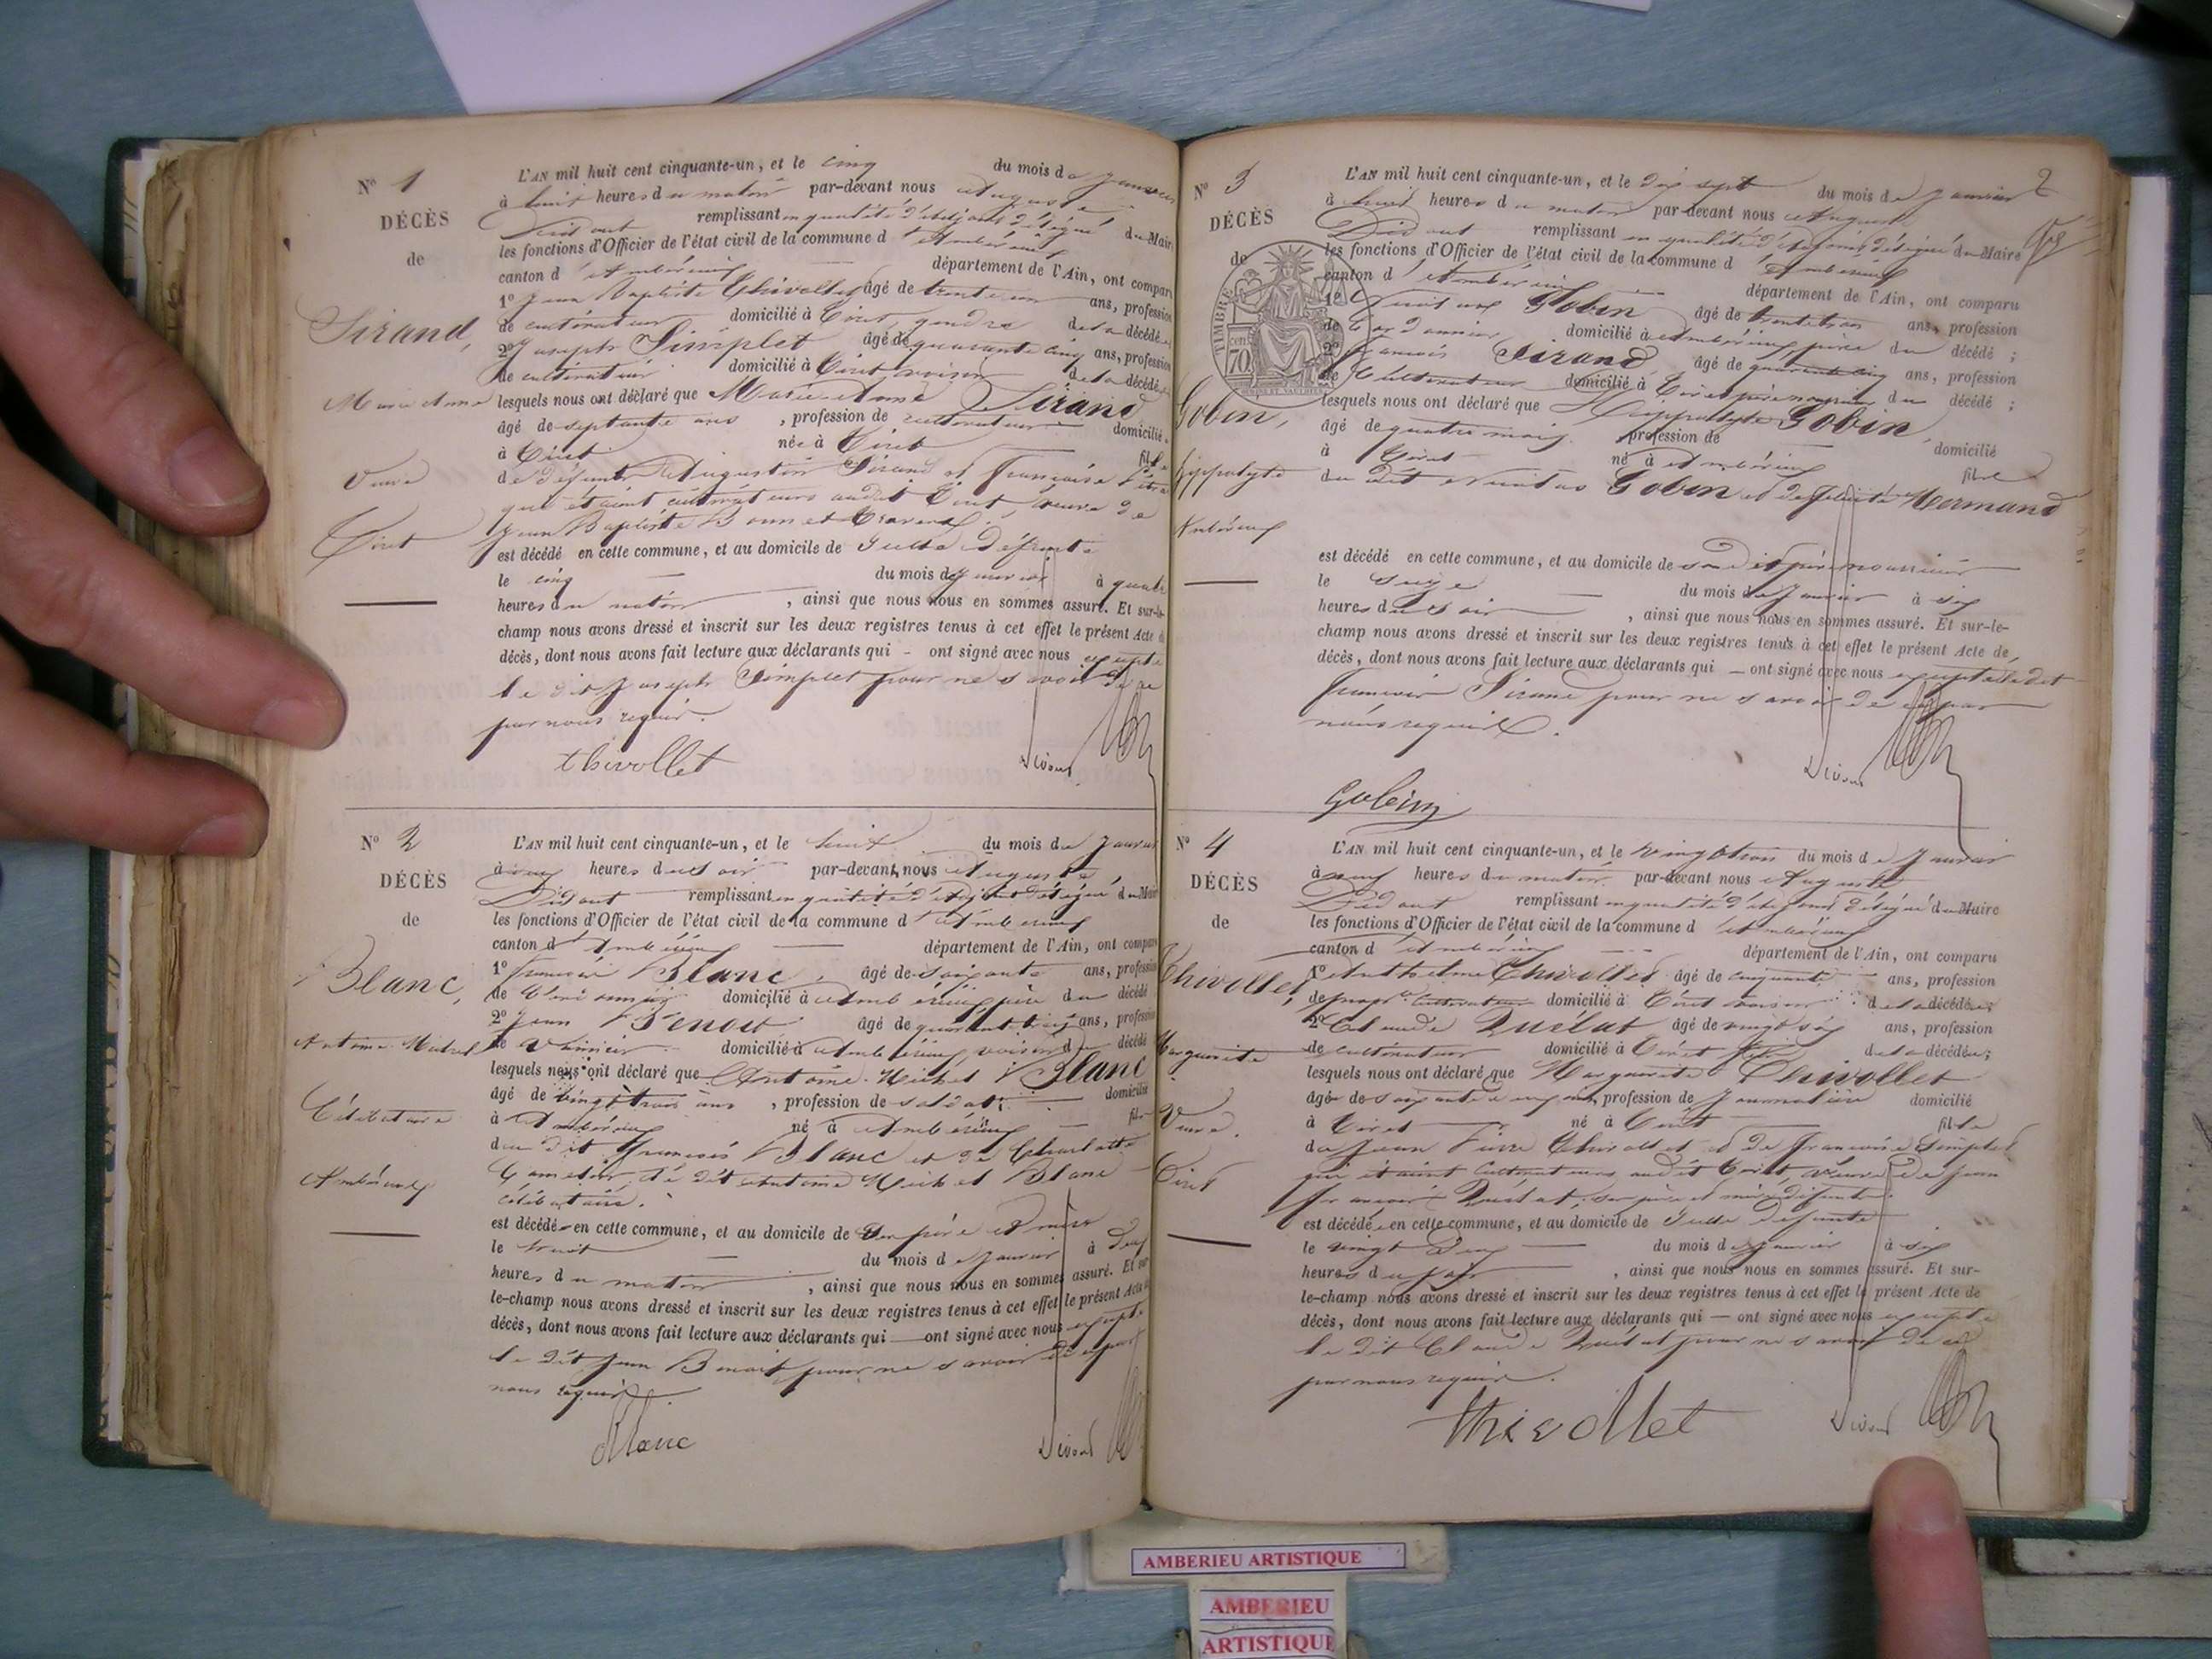 N° 1
DÉCÈS
de
Sirand,
Marie Anne
Veuve
Tiret
L'AN mil huit cent cinquante-un, et le cinq du mois de Janvier
à huit heures du matin par-devant nous Auguste
remplissant en qualité d'adjoint délégué du Maire
les fonctions d'Officier de l'état civil de la commune d'Ambérieux
canton d'Ambérieux département de l'Ain, ont comparu
1° Jean Baptiste Thivollet âgé de trente un ans, profession
de cultivateur domicilié à Tiret gendre de la décédée
2° Joseph Simplet âgé de quarante cinq ans, profession
de cultivateur domicilié à Tiret voisin de la décédée
lesquels nous ont déclaré que Marie Anne Sirand
âgé de septante ans, profession de cultivateur domiciliée
à Tiret née à Tiret fille
de défunts Augustin Sirand et Françoise
qui étaient cultivateurs audit Tiret, veuve de
Jean Baptiste Bonnet
est décédé en cette commune, et au domicile de la dite défunte
le cinq du mois de Janvier à quatre
heures du matin, ainsi que nous nous en sommes assuré. Et sur-le-
champ nous avons dressé et inscrit sur les deux registres tenus à cet effet le présent Acte de
décès, dont nous avons fait lecture aux déclarants qui - ont signé avec nous excepté
le dit Joseph Simplet pour ne savoir de ce
par nous requis.
thivollet
N° 2
DÉCÈS
de
Blanc,
Antoine Michel
Célibataire
Ambérieux
L'AN mil huit cent cinquante-un, et le huit du mois de Janvier
à heures du soir par-devant nous Auguste
remplissant en qualité d'adjoint délégué du Maire
les fonctions d'Officier de l'état civil de la commune d'Ambérieux
canton d'Ambérieux département de l'Ain, ont comparu
1° François Blanc, âgé de soixante ans, profession
de domicilié à Ambérieux père du décédé
2° Jean Benoit âgé de ans, profession
de domicilié à Ambérieux voisin du décédé
lesquels nous ont déclaré que Antoine Michel Blanc
âgé de vingt trois ans, profession de soldat domicilié
à Ambérieux né à Ambérieux fils
du dit François Blanc et de Charlotte
le dit Antoine Michel Blanc
célibataire.
est décédé en cette commune, et au domicile de ses père et mère
le huit du mois de Janvier à deux
heures du matin, ainsi que nous nous en sommes assuré. Et sur-
le-champ nous avons dressé et inscrit sur les deux registres tenus à cet effet le présent Acte de
décès, dont nous avons fait lecture aux déclarants qui — ont signé avec nous excepté
le dit Jean Benoit pour ne savoir de ce par
nous requis
Blanc
2
N° 3
DÉCÈS
de
TIMBRE
70
Gobin,
hippolyte
Ambérieux
L'AN mil huit cent cinquante-un, et le dix sept du mois de Janvier
à huit heures du matin par-devant nous Auguste
remplissant en qualité d'adjoint délégué du Maire
les fonctions d'Officier de l'état civil de la commune d'Ambérieux
canton d'Ambérieux département de l'Ain, ont comparu
1° Gobin âgé de trente trois ans, profession
de domicilié à Ambérieux père du décédé;
2° François Sirand âgé de quarante cinq ans, profession
de Cultivateur domicilié à Tiret père nourricier du décédé;
lesquels nous ont déclaré que Hippolyte Gobin,
âgé de quatre mois, profession de domicilié
à Tiret né à Ambérieux fils
du dit Gobin et de Mermand
est décédé en cette commune, et au domicile de son dit père nourricier
le seize du mois de Janvier à six
heures du soir, ainsi que nous nous en sommes assuré. Et sur-le-
champ nous avons dressé et inscrit sur les deux registres tenus à cet effet le présent Acte de
décès, dont nous avons fait lecture aux déclarants qui — ont signé avec nous excepté le dit
François Sirand pour ne savoir de ce par
nous requis.
Gobin
N° 4
DÉCÈS
de
Thivollet,
Marguerite
Veuve.
Tiret
L'AN mil huit cent cinquante-un, et le vingt trois du mois de Janvier
à neuf heures du matin par-devant nous Auguste
remplissant en qualité d'adjoint délégué du Maire
les fonctions d'Officier de l'état civil de la commune d'Ambérieux
canton d'Ambérieux département de l'Ain, ont comparu
1° Anthelme Thivollet âgé de cinquante ans, profession
de cultivateur domicilié à Tiret voisin de la décédée;
2° Claude Quélat âgé de vingt six ans, profession
de cultivateur domicilié à Tiret fils de la décédée;
lesquels nous ont déclaré que Marguerite Thivollet
âgé de soixante cinq ans, profession de Journalière domicilié
à Tiret né à Tiret fille
de Jean Pierre Thivollet et de Françoise Simplet
qui étaient Cultivateurs audit Tiret, veuve de Jean
François Quélat, ses père et mère défunts.
est décédée en cette commune, et au domicile de la dite défunte
le vingt deux du mois de Janvier à six
heures du soir, ainsi que nous nous en sommes assuré. Et sur-
le-champ nous avons dressé et inscrit sur les deux registres tenus à cet effet le présent Acte de
décès, dont nous avons fait lecture aux déclarants qui — ont signé avec nous excepté
le dit Claude Quélat pour ne savoir de ce
par nous requis.
thivollet
AMBERIEU ARTISTIQUE
AMBERIEU
ARTISTIQUE